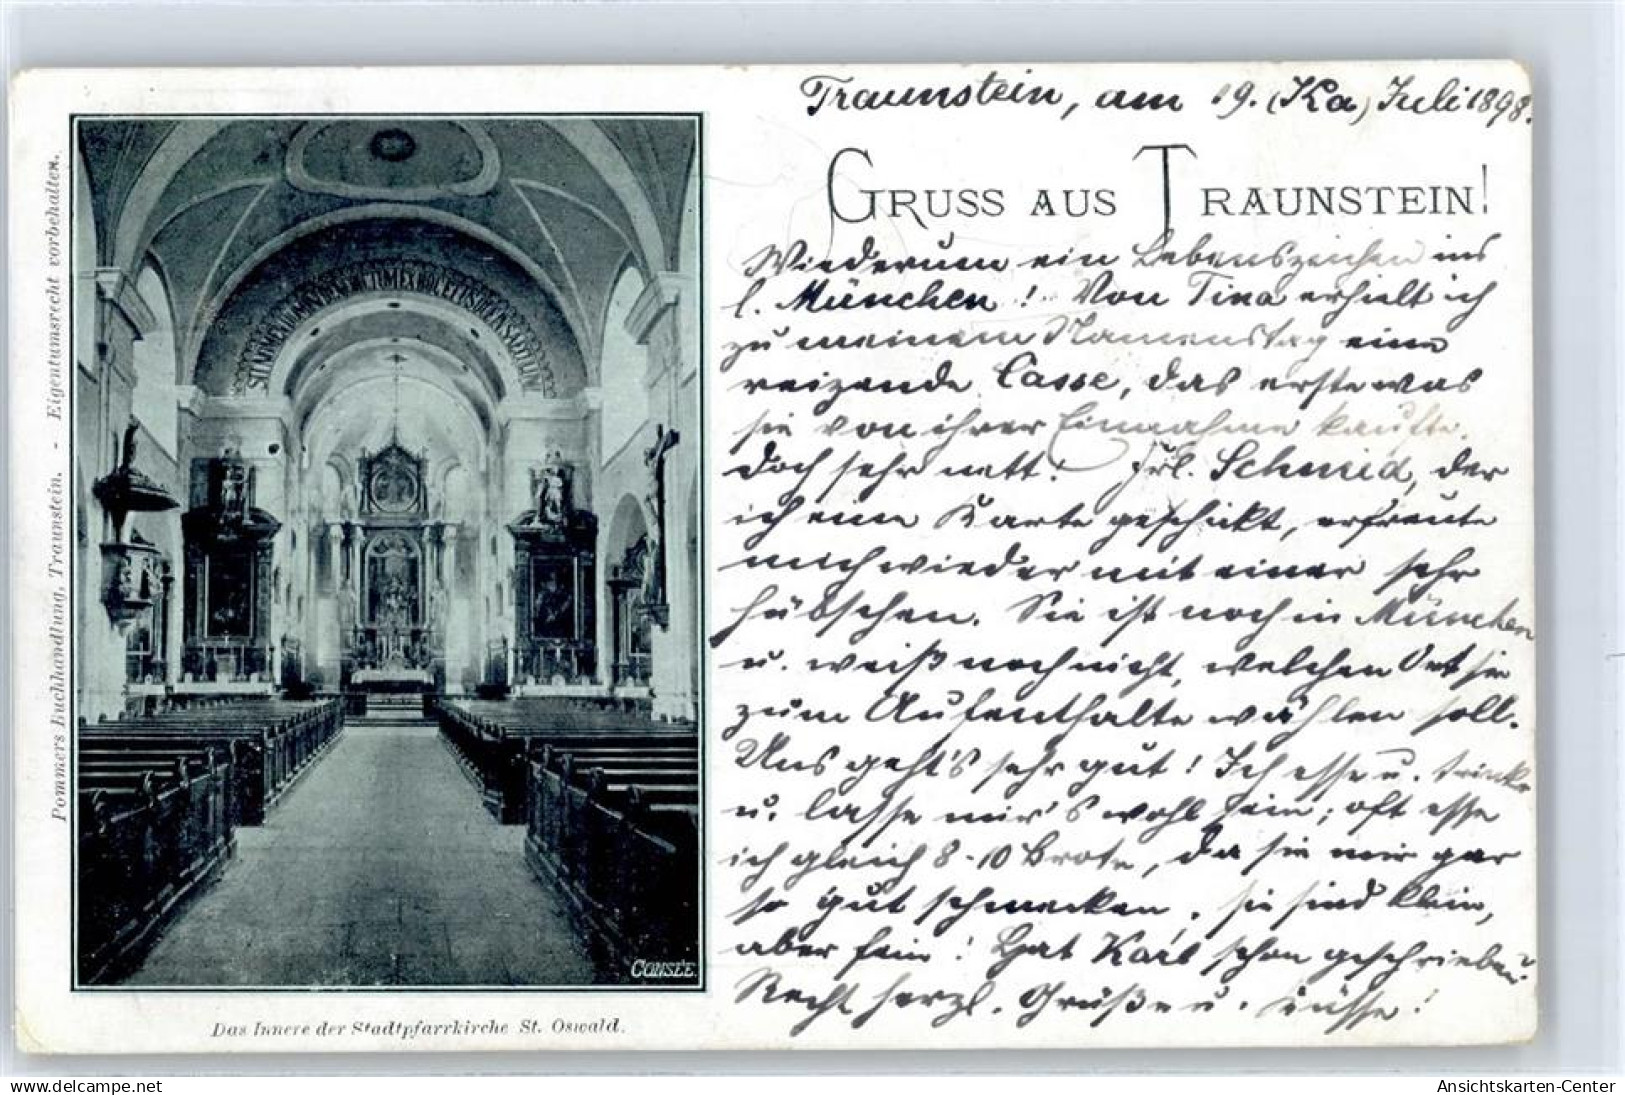 Traunstein, am 19. (Ka) Juli 1898.
GRUSS AUS TRAUNSTEIN!
Wiederum ein Lebenszeichen ins
l. München! Von Tina erhielt ich
zu meinem Namenstag eine
reizende Casse, das erste was
sie von ihrer Einnahme kaufte.
Doch sehr nett! Frl. Schmid, der
ich eine Karte geschickt, erfreute
mich wieder mit einer sehr
hübschen. Sie ist noch in München
u. weiß noch nicht, welchen Ort sie
zum Aufenthalte wählen soll.
Uns geht's sehr gut! Ich esse u. trinke
u. lasse mir's wohl sein; oft esse
ich gleich 8-10 Brote, da sie mir gar
so gut schmecken, sie sind klein,
aber fein! Hat Karl schon geschrieben?
Recht herzl. Grüße u. Küsse!
Pommers Buchhandlung, Traunstein. - Eigentumsrecht vorbehalten.
CONSÉE
Das Innere der Stadtpfarrkirche St. Oswald.
www.delcampe.net
Ansichtskarten-Center